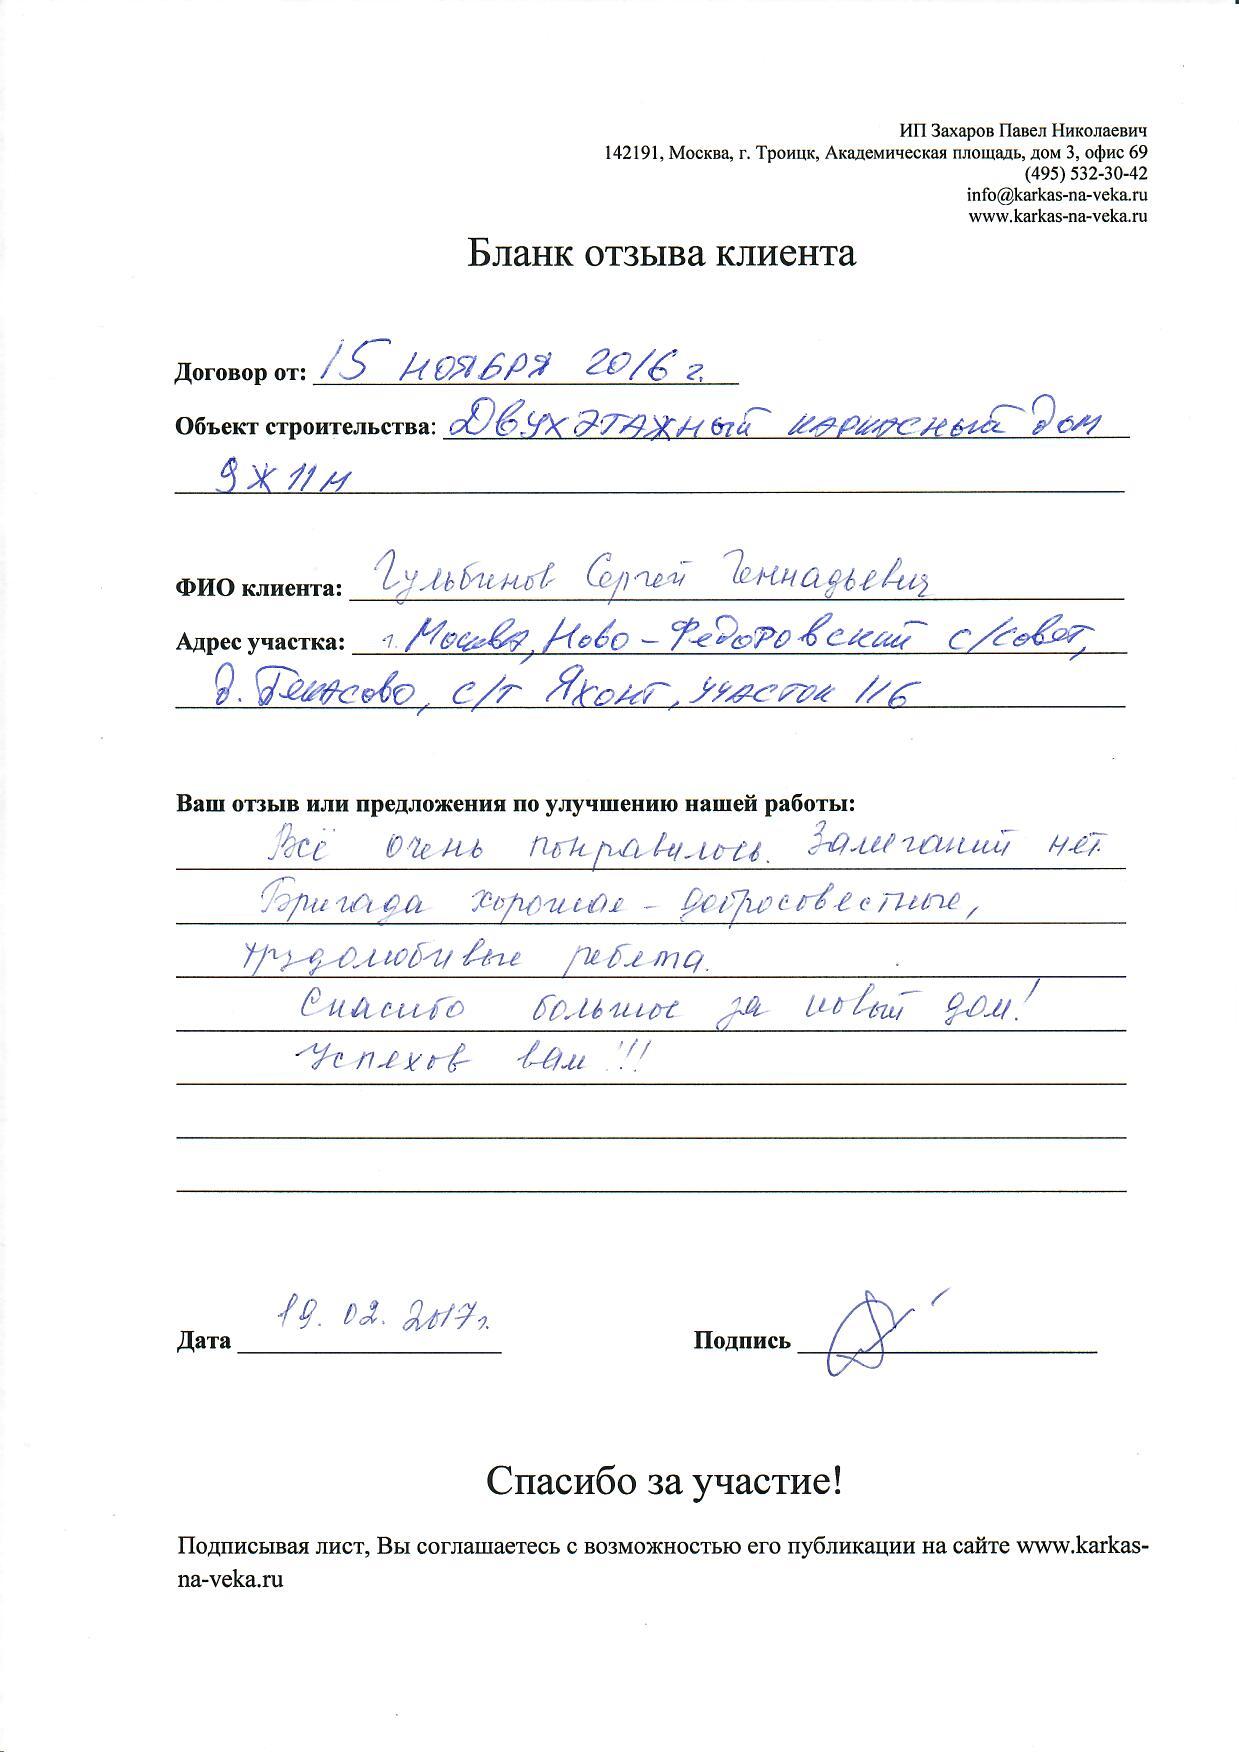 ИП Захаров Павел Николаевич
142191, Москва, г. Троицк, Академическая площадь, дом 3, офис 69
(495) 532-30-42
info@karkas-na-veka.ru
www.karkas-na-veka.ru
Бланк отзыва клиента
Договор от: 15 ноября 2016 г.
Объект строительства: Двухэтажный каркасный дом
9 ж 11 м
ФИО клиента: Гульбинов Сергей Геннадьевич
Адрес участка: г. Москва, Ново-Федоровский с/совет,
д. Бекасово, с/т Яхонт, участок 116
Ваш отзыв или предложения по улучшению нашей работы:
Всё очень понравилось. Замечаний нет.
Бригада хорошая - добросовестные,
трудолюбивые ребята.
Спасибо большое за новый дом!
Успехов вам!!!
Дата 19.02.2017г.
Подпись
Спасибо за участие!
Подписывая лист, Вы соглашаетесь с возможностью его публикации на сайте www.karkas-
na-veka.ru